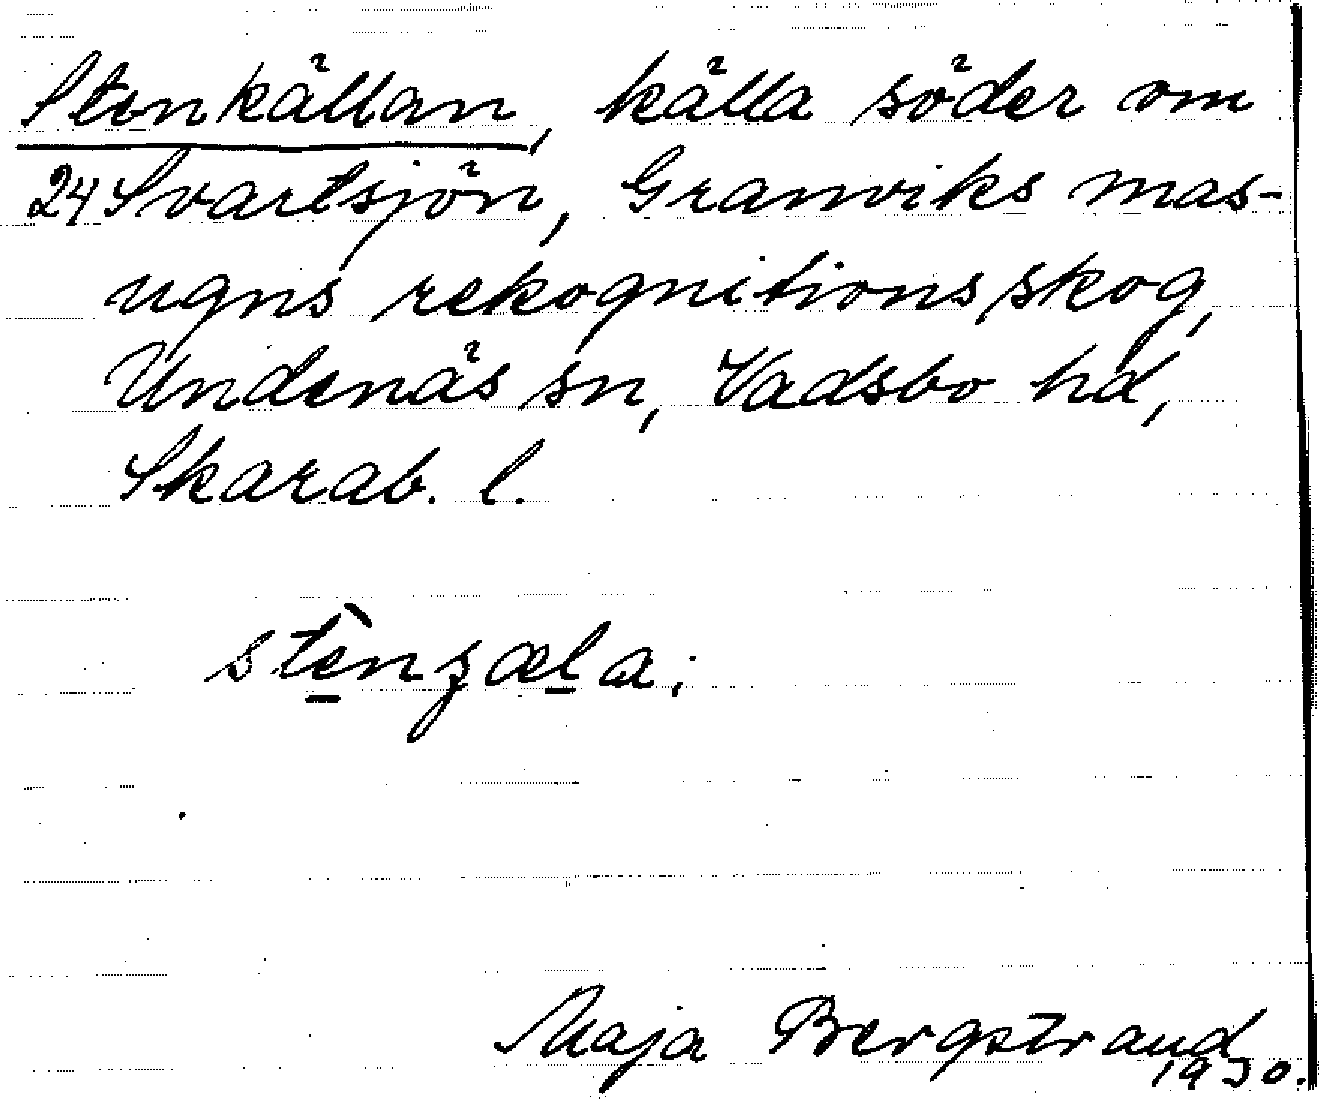 Stenkällan, källa söder om
24 Svartsjön, Granviks mas-
ugns rekognitionsskog,
Undenäs sn, Vadsbo hd,
Skarab. l.
stè̠nʒæl̠a.
Maja Bergstrand
1930.